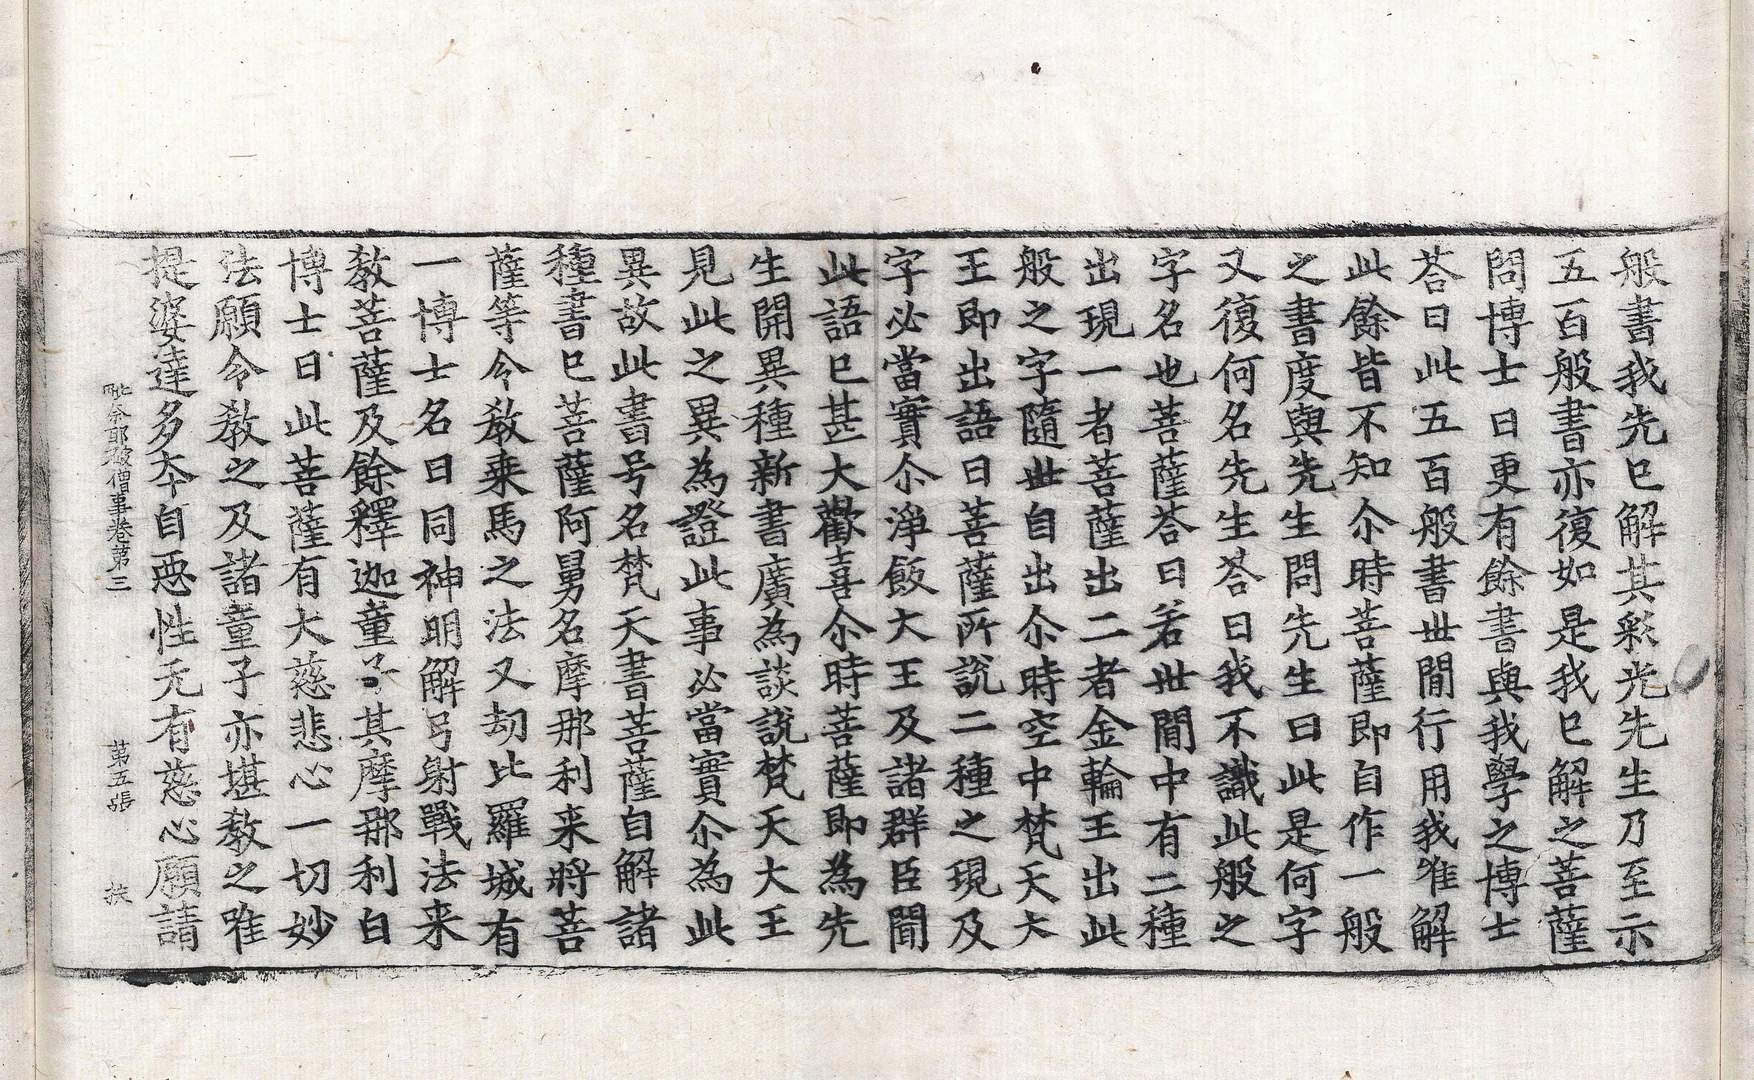 般書我先已解其彩光先生乃至示
五百般書亦復如是我已解之菩薩
問博士曰更有餘書與我學之博士
荅曰此五百般書世間行用我唯解
此餘皆不知尒時菩薩即自作一般
之書度與先生問先生曰此是何字
又復何名先生荅曰我不識此般之
字名也菩薩荅曰若世間中有二種
出現一者菩薩出二者金輪王出此
般之字隨世自出尒時空中梵天大
王即出語曰菩薩所說二種之現及
字必當實尒淨飯大王及諸群臣聞
此語已甚大歡喜尒時菩薩即為先
生開異種新書廣為談說梵天大王
見此之異為證此事必當實尒為此
異故此書号名梵天書菩薩自解諸
種書已菩薩阿舅名摩那利来將菩
薩等令教乗馬之法又劫比羅城有
一博士名曰同神明解弓射戰法来
教菩薩及餘釋迦童子其摩那利白
博士曰此菩薩有大慈悲心一切妙
法願令教之及諸童子亦堪教之唯
提婆達多夲自惡性无有慈心願請
毗奈耶破僧事卷第三 第五張 扶